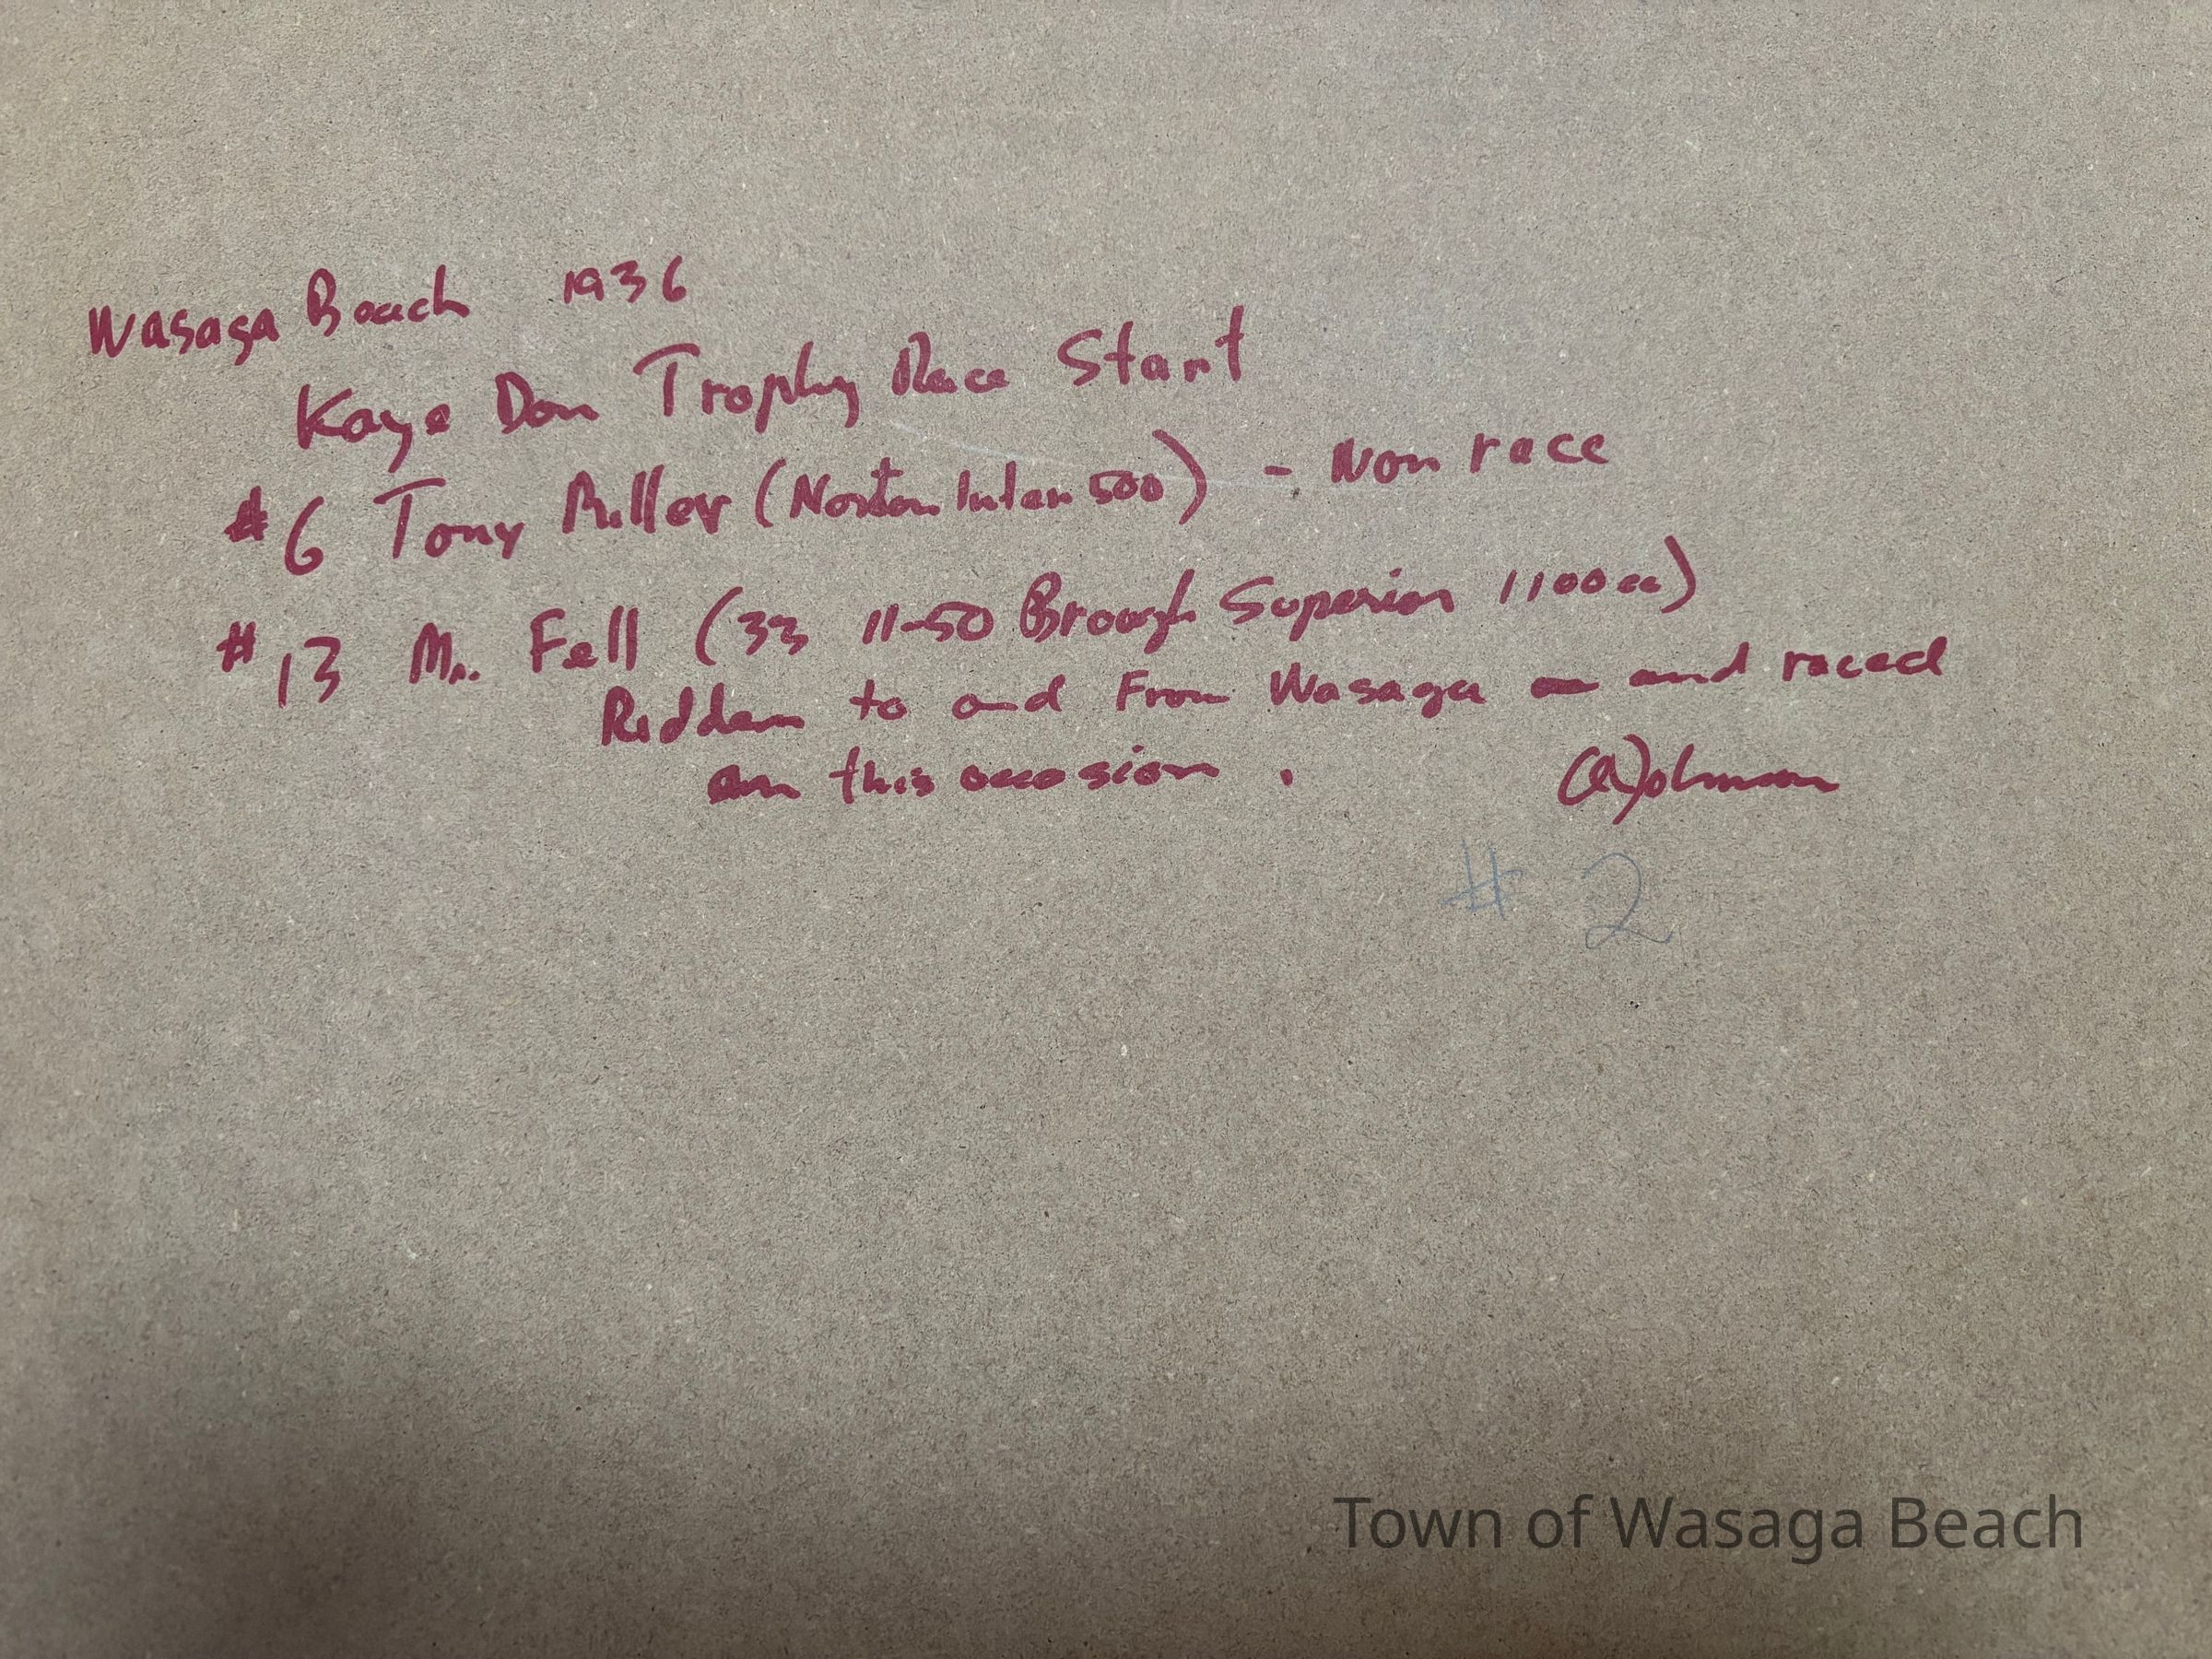 Wasaga Beach 1936
Kaye Don Trophy Race Start
#6 Tony Miller (Norton Inter 500) - Won race
#13 Mr. Fell (33 11-50 Brough Superior 1100cc)
Ridden to and From Wasaga and raced
on this occasion.
# 2
Town of Wasaga Beach